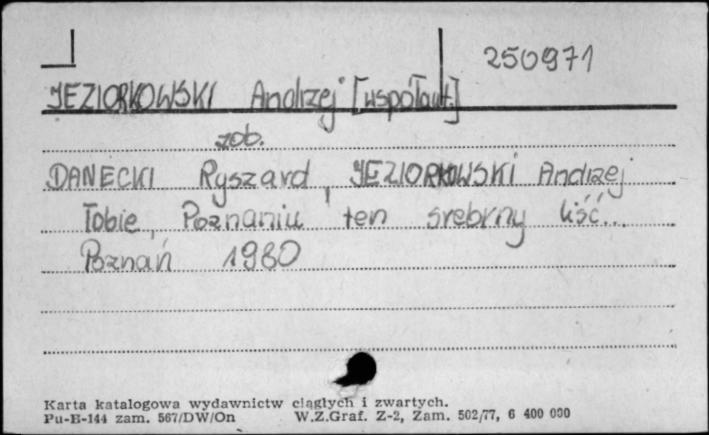 250971
JEZIORKOWSKI Andrzej [współaut.]
zob.
DANECKI Ryszard, JEZIORKOWSKI Andrzej
Tobie, Poznaniu ten srebrny liść...
Poznań 1980
Karta katalogowa wydawnictw ciągłych i zwartych.
Pu-B-144 zam. 567/DW/On W.Z.Graf. Z-2, Zam. 502/77, 6 400 000